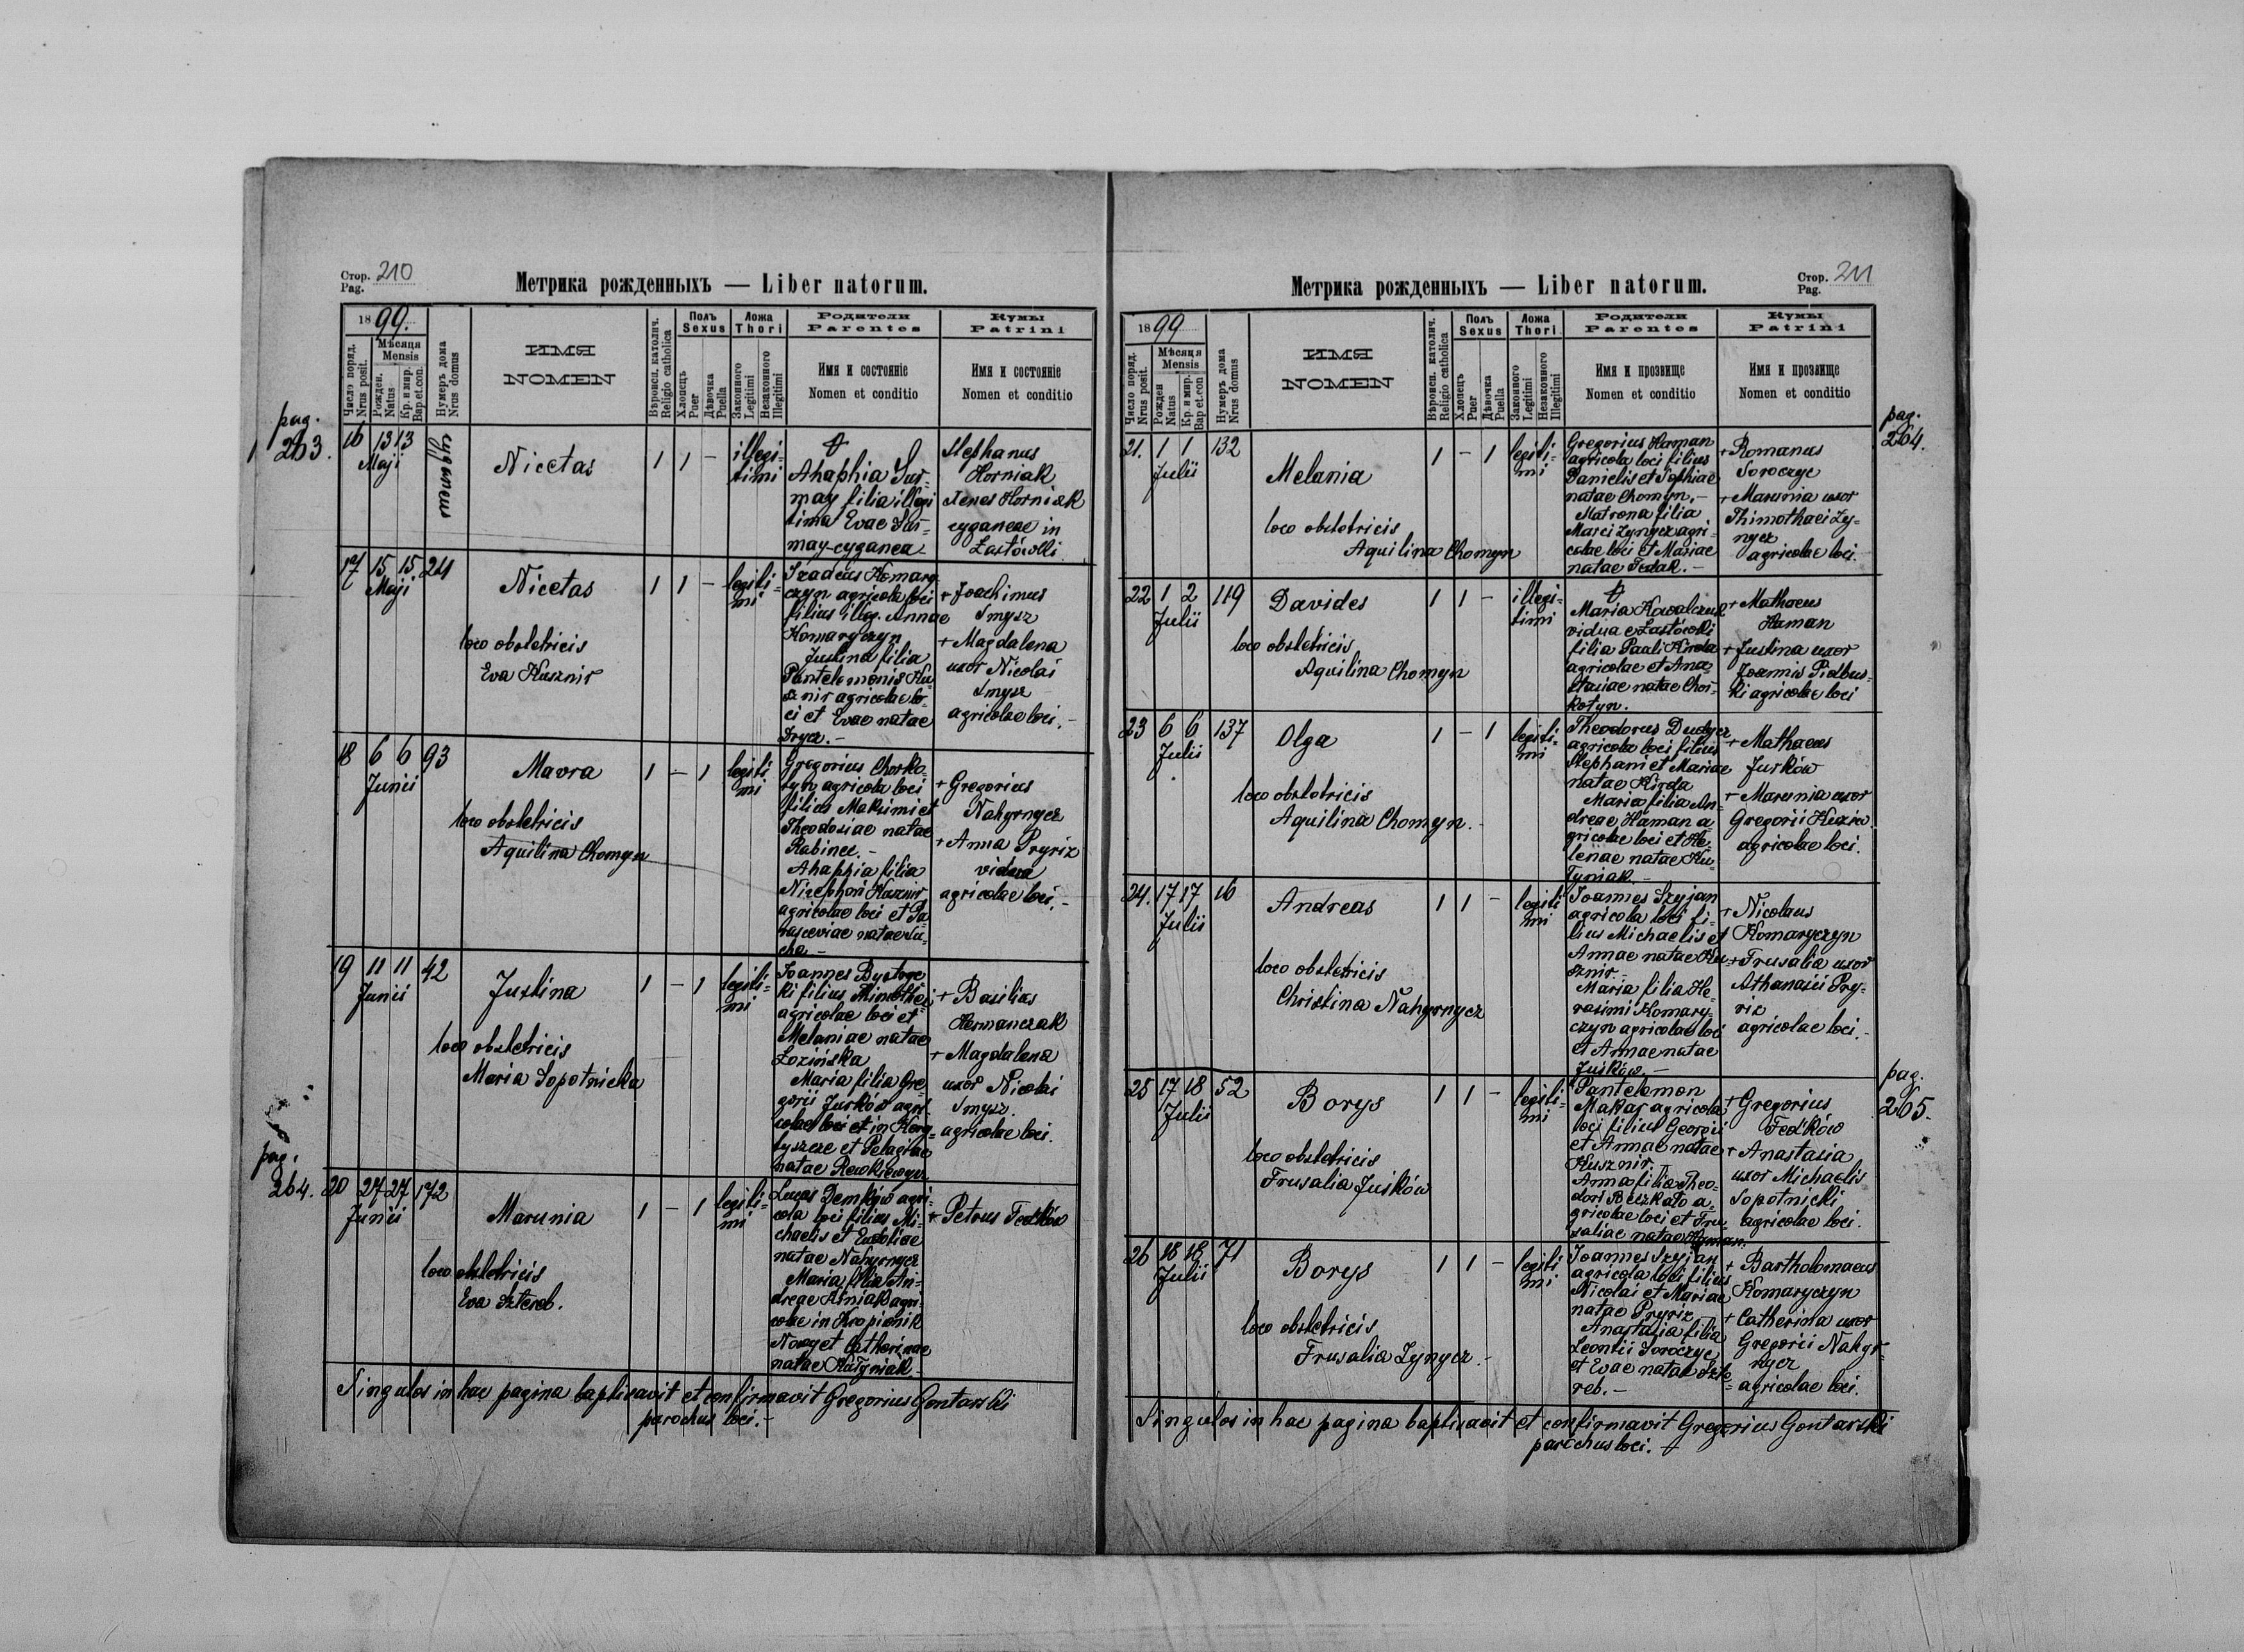 Стор. 210
Pag.
Метрика рожденныхъ — Liber natorum.
1899.
Число поряд.
Nrus posit.
Мѣсяця
Mensis
Рожден.
Natus
Кр. и мир.
Bap. et. con.
Нумеръ дома
Nrus domus
ИМЯ
NOMEN
Вѣроисп. католич.
Religio catholica
Полъ
Sexus
Хлопецъ
Puer
Дѣвочка
Puella
Ложа
Thori
Законного
Legitimi
Незаконного
Illegitimi
Родители
Parentes
Имя и состояніе
Nomen et conditio
Кумы
Patrini
Имя и состояніе
Nomen et conditio
pag.
263.
16 13 13
Maji
Nicetas
1 1 –
illegi-
timi
Ahaphia Sur-
may filia illegi
tima Evae Sur-
may-cyganea
Stephanus
Horniak
Xenes Horniak
cyganeae in
Łastówki
17 15 15 24
Maji
Nicetas
loco obstetricis
Eva Kusznir
1 1 –
legiti-
mi
Izadeus Komary
czyn agricola loci
filius illeg. Annae
Komaryczyn
Justina filia
Pantelemonis Ku-
sznir agricolae lo-
ci et Evae natae
Drycz. –
+ Joachimus
Smysz
+ Magdalena
uxor Nicolai
Smysz
agricolae loci. –
18 6 6 93
Junii
Mavra
loco obstetricis
Aquilina Chomyn
1 – 1
legiti
mi
Gregorius Chorko-
tyn agricola loci
filius Maksimi et
Theodosiae natae
Rabinec. –
Ahaphia filia
Nicephori Kusznir
agricolae loci et Pa-
rasceviae natae Lu-
cha –
+ Gregorius
Nahyrnycz
+ Anna Pryriz
vidua
agricolae loci. –
19 11 11 42
Junii
Justina
loco obstetricis
Maria Sopotnicka
1 – 1
legiti-
mi
Joannes Bystryc
ki filius Thimothei
agricolae loci et
Melaniae natae
Łozińska
Maria filia Gre-
gorii Jurków agri-
colae loci et in Kory-
tyszcze et Pelagiae
natae
+ Basilius
Hermanczak
+ Magdalena
uxor Nicolai
Smysz.
agricolae loci.
pag.
264.
20 27 27 172
Junii
Marunia
loco obstetricis
Eva Sztereb.
1 – 1
legiti-
mi
Lucas Demków agri-
cola loci filius Mi-
chaelis et Eudoliae
natae Nahyrnycz
Maria filia An-
dreae Hśniak agri-
colae in Kropiwnik
Nowy et Catherinae
natae Hałyniak –
+ Petrus Fedków
Singulos in hac pagina baptisavit et confirmavit Gregorius Gontarski
parochus loci. –
Метрика рожденныхъ — Liber natorum.
Стор. 211
Pag.
1899
Число поряд.
Nrus posit.
Мѣсяця
Mensis
Рожден
Natus
Кр. и мир.
Bap et.con
Нумеръ дома
Nrus domus
ИМЯ
NOMEN
Вѣроисп. католич.
Religio catholica
Полъ
Sexus
Хлопецъ
Puer
Дѣвочка
Puella
Ложа
Thori
Законного
Legitimi
Незаконного
Illegitimi
Родители
Parentes
Имя и прозвище
Nomen et conditio
Кумы
Patrini
Имя и прозвище
Nomen et conditio
pag.
264.
21. 1 1 132
Julii
Melania
loco obstetricis
Aquilina Chomyn
1 – 1
legiti-
mi
Gregorius Haman
agricola loci filius
Danielis et Sophiae
natae Chomyn. –
Matrona filia
Marci Zynycz agri-
colae loci et Mariae
natae Fedak. –
+ Romanus
Soroczyc
+ Marunia uxor
Thimothaei Zy-
nycz
agricolae loci.
22 1 2 119
Julii
Davides
loco obstetricis
Aquilina Chomyn
1 1 –
illegi-
timi
Maria Kowalczuk
vidua e Łastówki
filia Paali Kirda
agricolae et Ana
stasiae natae Chor-
kotyn.
+ Mathaeus
Haman
+ Justina uxor
Joannis Pidbus-
ki agricolae loci
23 6 6 137
Julii
Olga
loco obstetricis
Aquilina Chomyn.
1 – 1
legiti-
mi
Theodorus Dudycz
agricola loci filius
Stephani et Mariae
natae Kirda
Maria filia An-
dreae Haman a-
gricolae loci et He-
lenae natae Hu-
tyniak –
+ Mathaeus
Jurków
+ Marunia uxor
Gregorii Kiziw
agricolae loci.
24. 17 17 16
Julii
Andreas
loco obstetricis
Christina Nahyrnycz
1 1 –
legiti
mi
Joannes Szyjan
agricola loci fi-
lius Michaelis et
Annae natae Ku-
sznir –
Maria filia He-
rasimi Komary-
czyn agricolae loci
et Annae natae
Juśków. –
+ Nicolaus
Komaryczyn
+ Frusalia uxor
Athanasii Pry-
riz
agricolae loci. –
pag.
265.
25 17 18 52
Julii
Borys
loco obstetricis
Frusalia Juśków
1 1 –
legiti-
mi
Pantelemon
Makar agricola
loci filius Georgii
et Annae natae
Kusznir. –
Anna filia Theo-
dori Beczkało a-
gricolae loci et Fru-
saliae natae Haman.
+ Gregorius
Fedków
+ Anastasia
uxor Michaelis
Sopotnicki
agricolae loci.
26 18 18 71
Julii
Borys
loco obstetricis
Frusalia Zynycz. –
1 1 –
legiti
mi
Joannes Szyjan
agricola loci filius
Nicolai et Mariae
natae Pryriz
Anastasia filia
Leontii Soroczyc
et Evae natae Szte-
reb. –
+ Bartholomaeus
Komaryczyn
+ Catherina uxor
Gregorii Nahyr-
nycz
agricolae loci.
Singulos in hac pagina baptisavit et confirmavit Gregorius Gontarski
parochus loci.